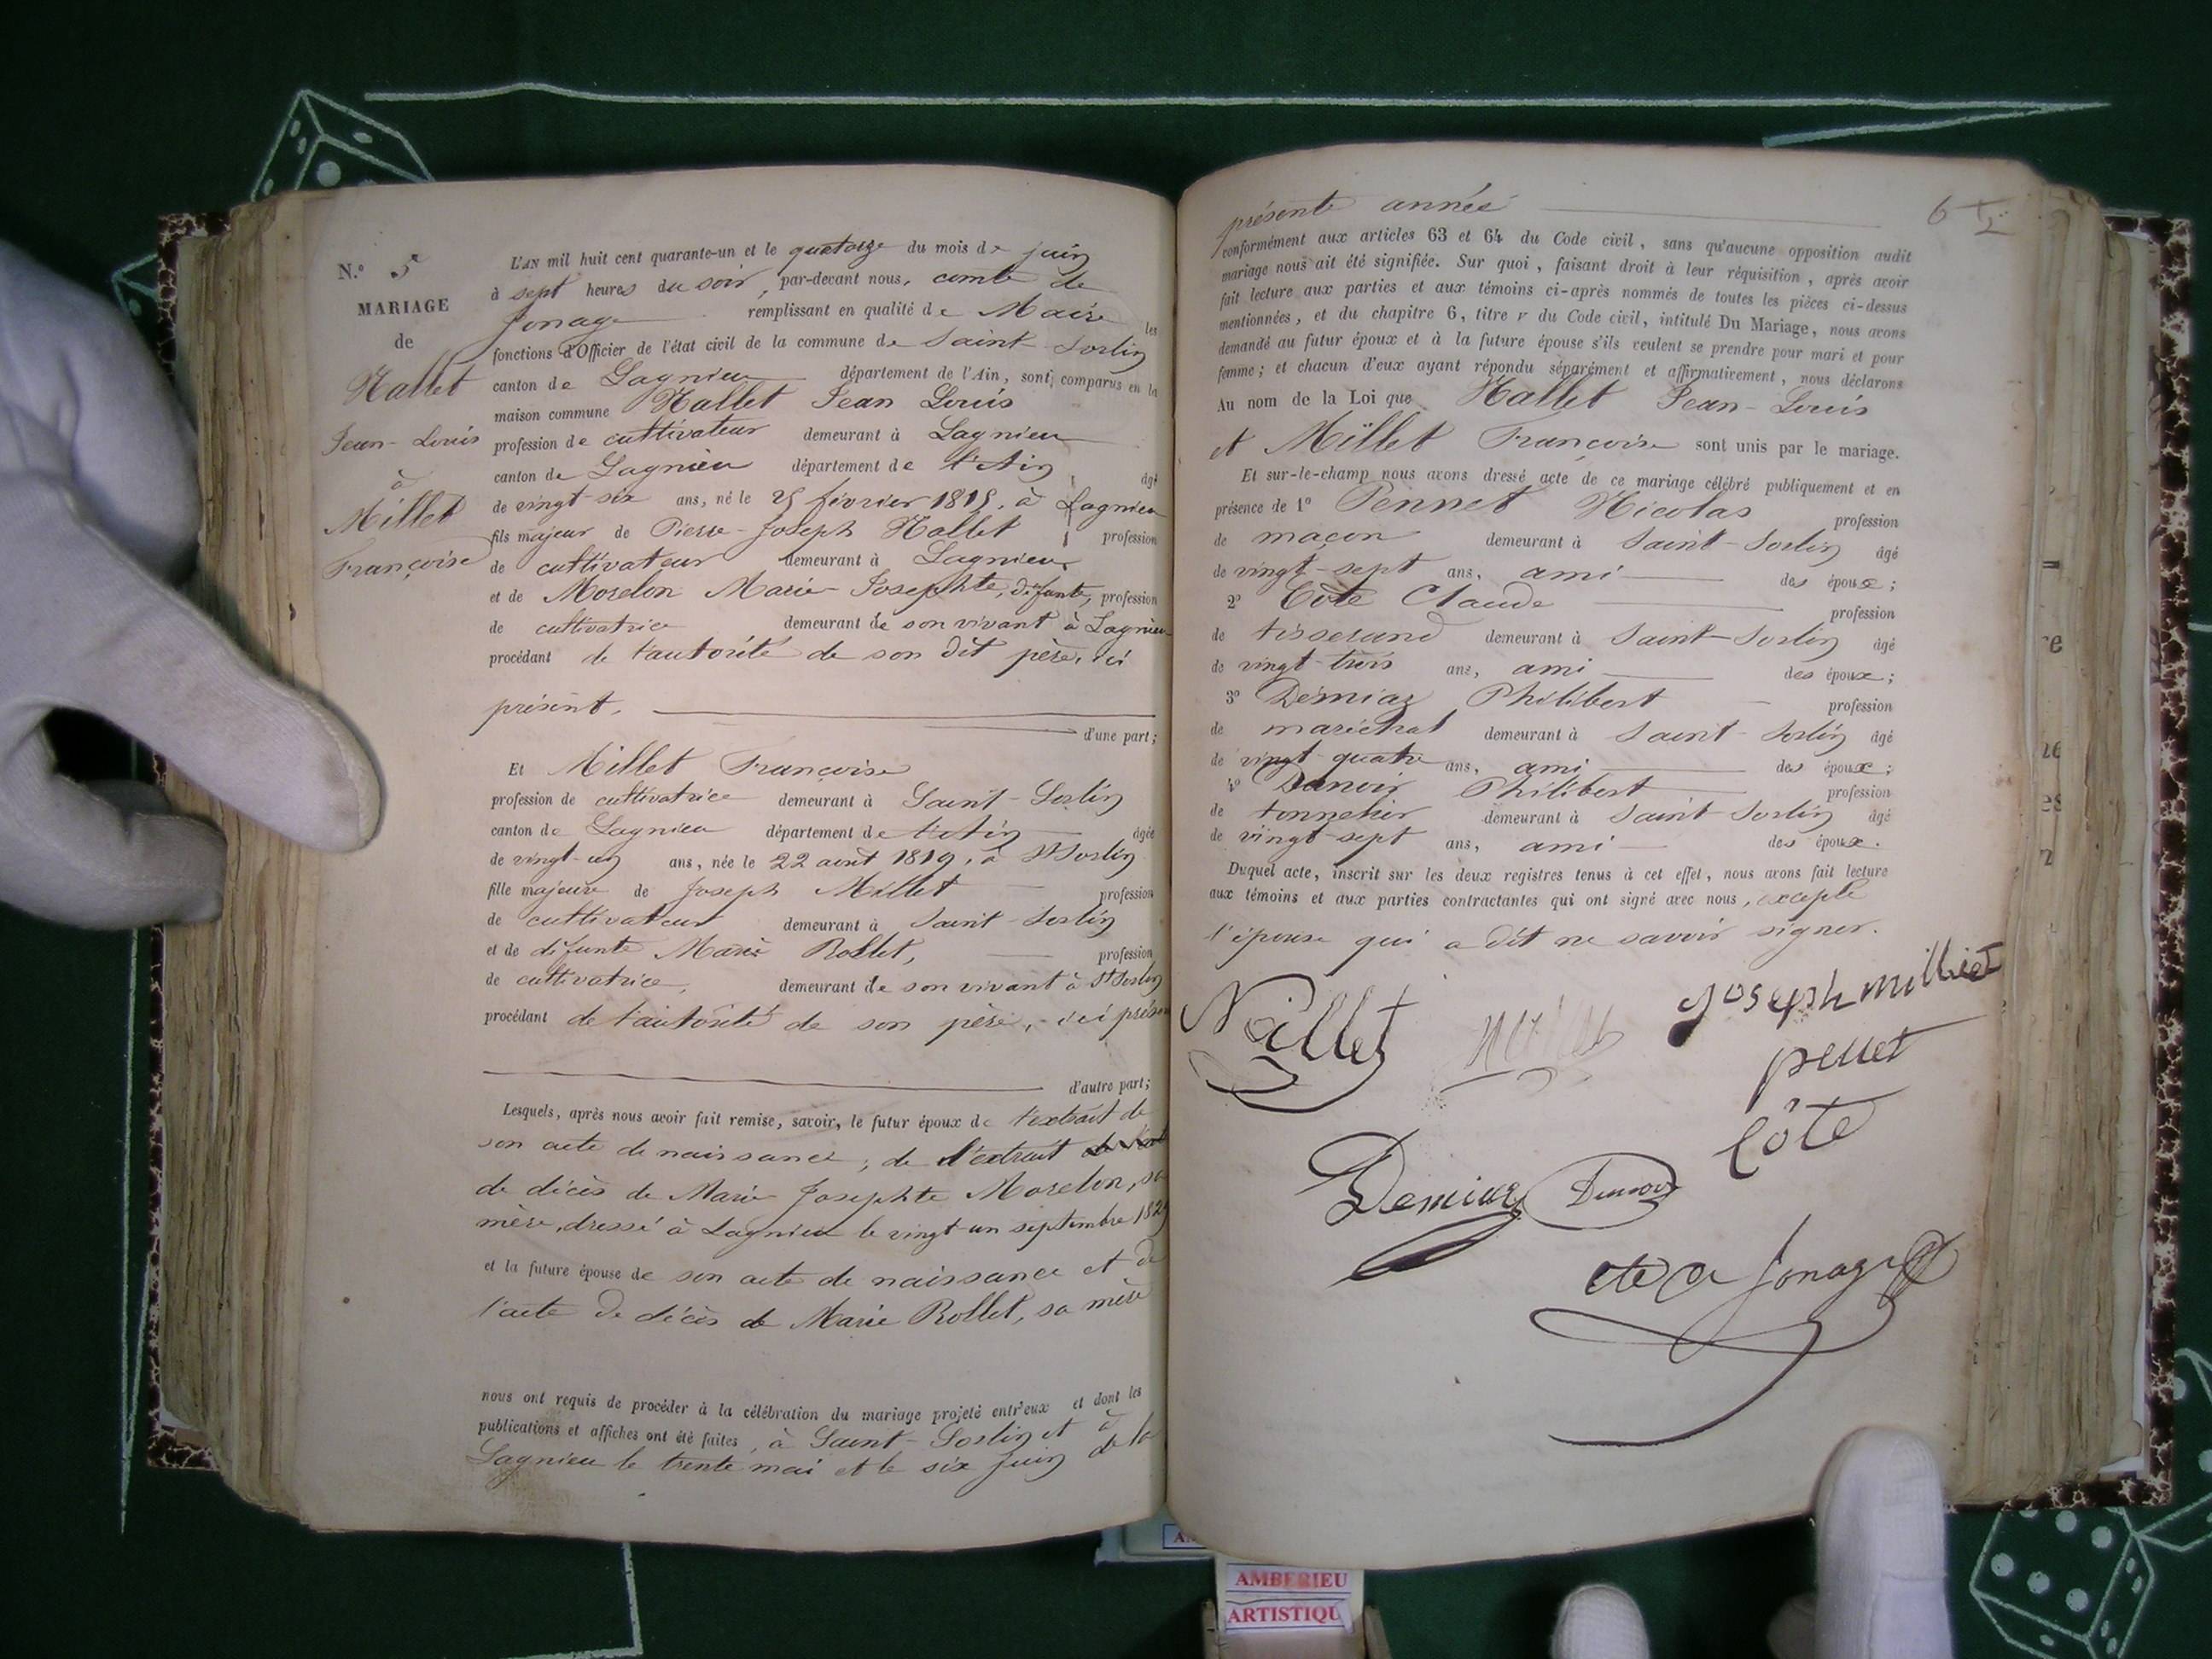 N.° 5
MARIAGE
de
Nallet
Jean-Louis
à
Millet
Françoise
L'AN mil huit cent quarante-un et le quatorze du mois de juin
à sept heures du soir, par-devant nous, comte de
Jonage remplissant en qualité de Maire les
fonctions d'Officier de l'état civil de la commune de Saint-Sorlin
canton de Lagnieu département de l'Ain, sont comparus en la
maison commune Nallet Jean Louis
profession de cultivateur demeurant à Lagnieu
canton de Lagnieu département de l'Ain âgé
de vingt-six ans, né le 25 février 1815, à Lagnieu
fils majeur de Pierre-Joseph Nallet profession
de cultivateur demeurant à Lagnieu
et de Morelon Marie-Josephte, défunte, profession
de cultivatrice demeurant de son vivant à Lagnieu
procédant de l'autorité de son dit père, ici
présent,
d'une part;
Et Millet Françoise
profession de cultivatrice demeurant à Saint-Sorlin
canton de Lagnieu département de l'Ain âgée
de vingt-un ans, née le 22 aout 1819, à St Sorlin
fille majeure de Joseph Millet profession
de cultivateur demeurant à Saint-Sorlin
et de défunte Marie Rollet, profession
de cultivatrice, demeurant de son vivant à St Sorlin
procédant de l'autorité de son père, ici présen
d'autre part;
Lesquels, après nous avoir fait remise, savoir, le futur époux de l'extrait de
son acte de naissance; de l'extrait
de décès de Marie Josephte Morelon, sa
mère, dressé à Lagnieu le vingt-un septembre 1829
et la future épouse de son acte de naissance et de
l'acte de décès de Marie Rollet, sa mère
nous ont requis de procéder à la célébration du mariage projeté entr'eux et dont les
publications et affiches ont été faites, à Saint-Sorlin et à
Lagnieu le trente mai et le six juin de la
6
présente année
conformément aux articles 63 et 64 du Code civil, sans qu'aucune opposition audit
mariage nous ait été signifiée. Sur quoi, faisant droit à leur réquisition, après avoir
fait lecture aux parties et aux témoins ci-après nommés de toutes les pièces ci-dessus
mentionnées, et du chapitre 6, titre v du Code civil, intitulé Du Mariage, nous avons
demandé au futur époux et à la future épouse s'ils veulent se prendre pour mari et pour
femme; et chacun d'eux ayant répondu séparément et affirmativement, nous déclarons
Au nom de la Loi que Nallet Jean-Louis
et Millet Françoise sont unis par le mariage.
Et sur-le-champ nous avons dressé acte de ce mariage célébré publiquement et en
présence de 1° Pennet Nicolas profession
de maçon demeurant à Saint-Sorlin âgé
de vingt-sept ans, ami des époux;
2° Cote Claude profession
de tisserand demeurant à Saint-Sorlin âgé
de vingt-trois ans, ami des époux;
3° Démiaz Philibert profession
de maréchal demeurant à Saint-Sorlin âgé
de vingt-quatre ans, ami des époux;
4° Philibert profession
de tonnelier demeurant à Saint-Sorlin âgé
de vingt-sept ans, ami des époux.
Duquel acte, inscrit sur les deux registres tenus à cet effet, nous avons fait lecture
aux témoins et aux parties contractantes qui ont signé avec nous, excepté
l'épouse qui a dit ne savoir signer.
Nallet
Joseph milliet
Côte
Demiaz
Jonage
AMBERIEU
ARTISTIQU